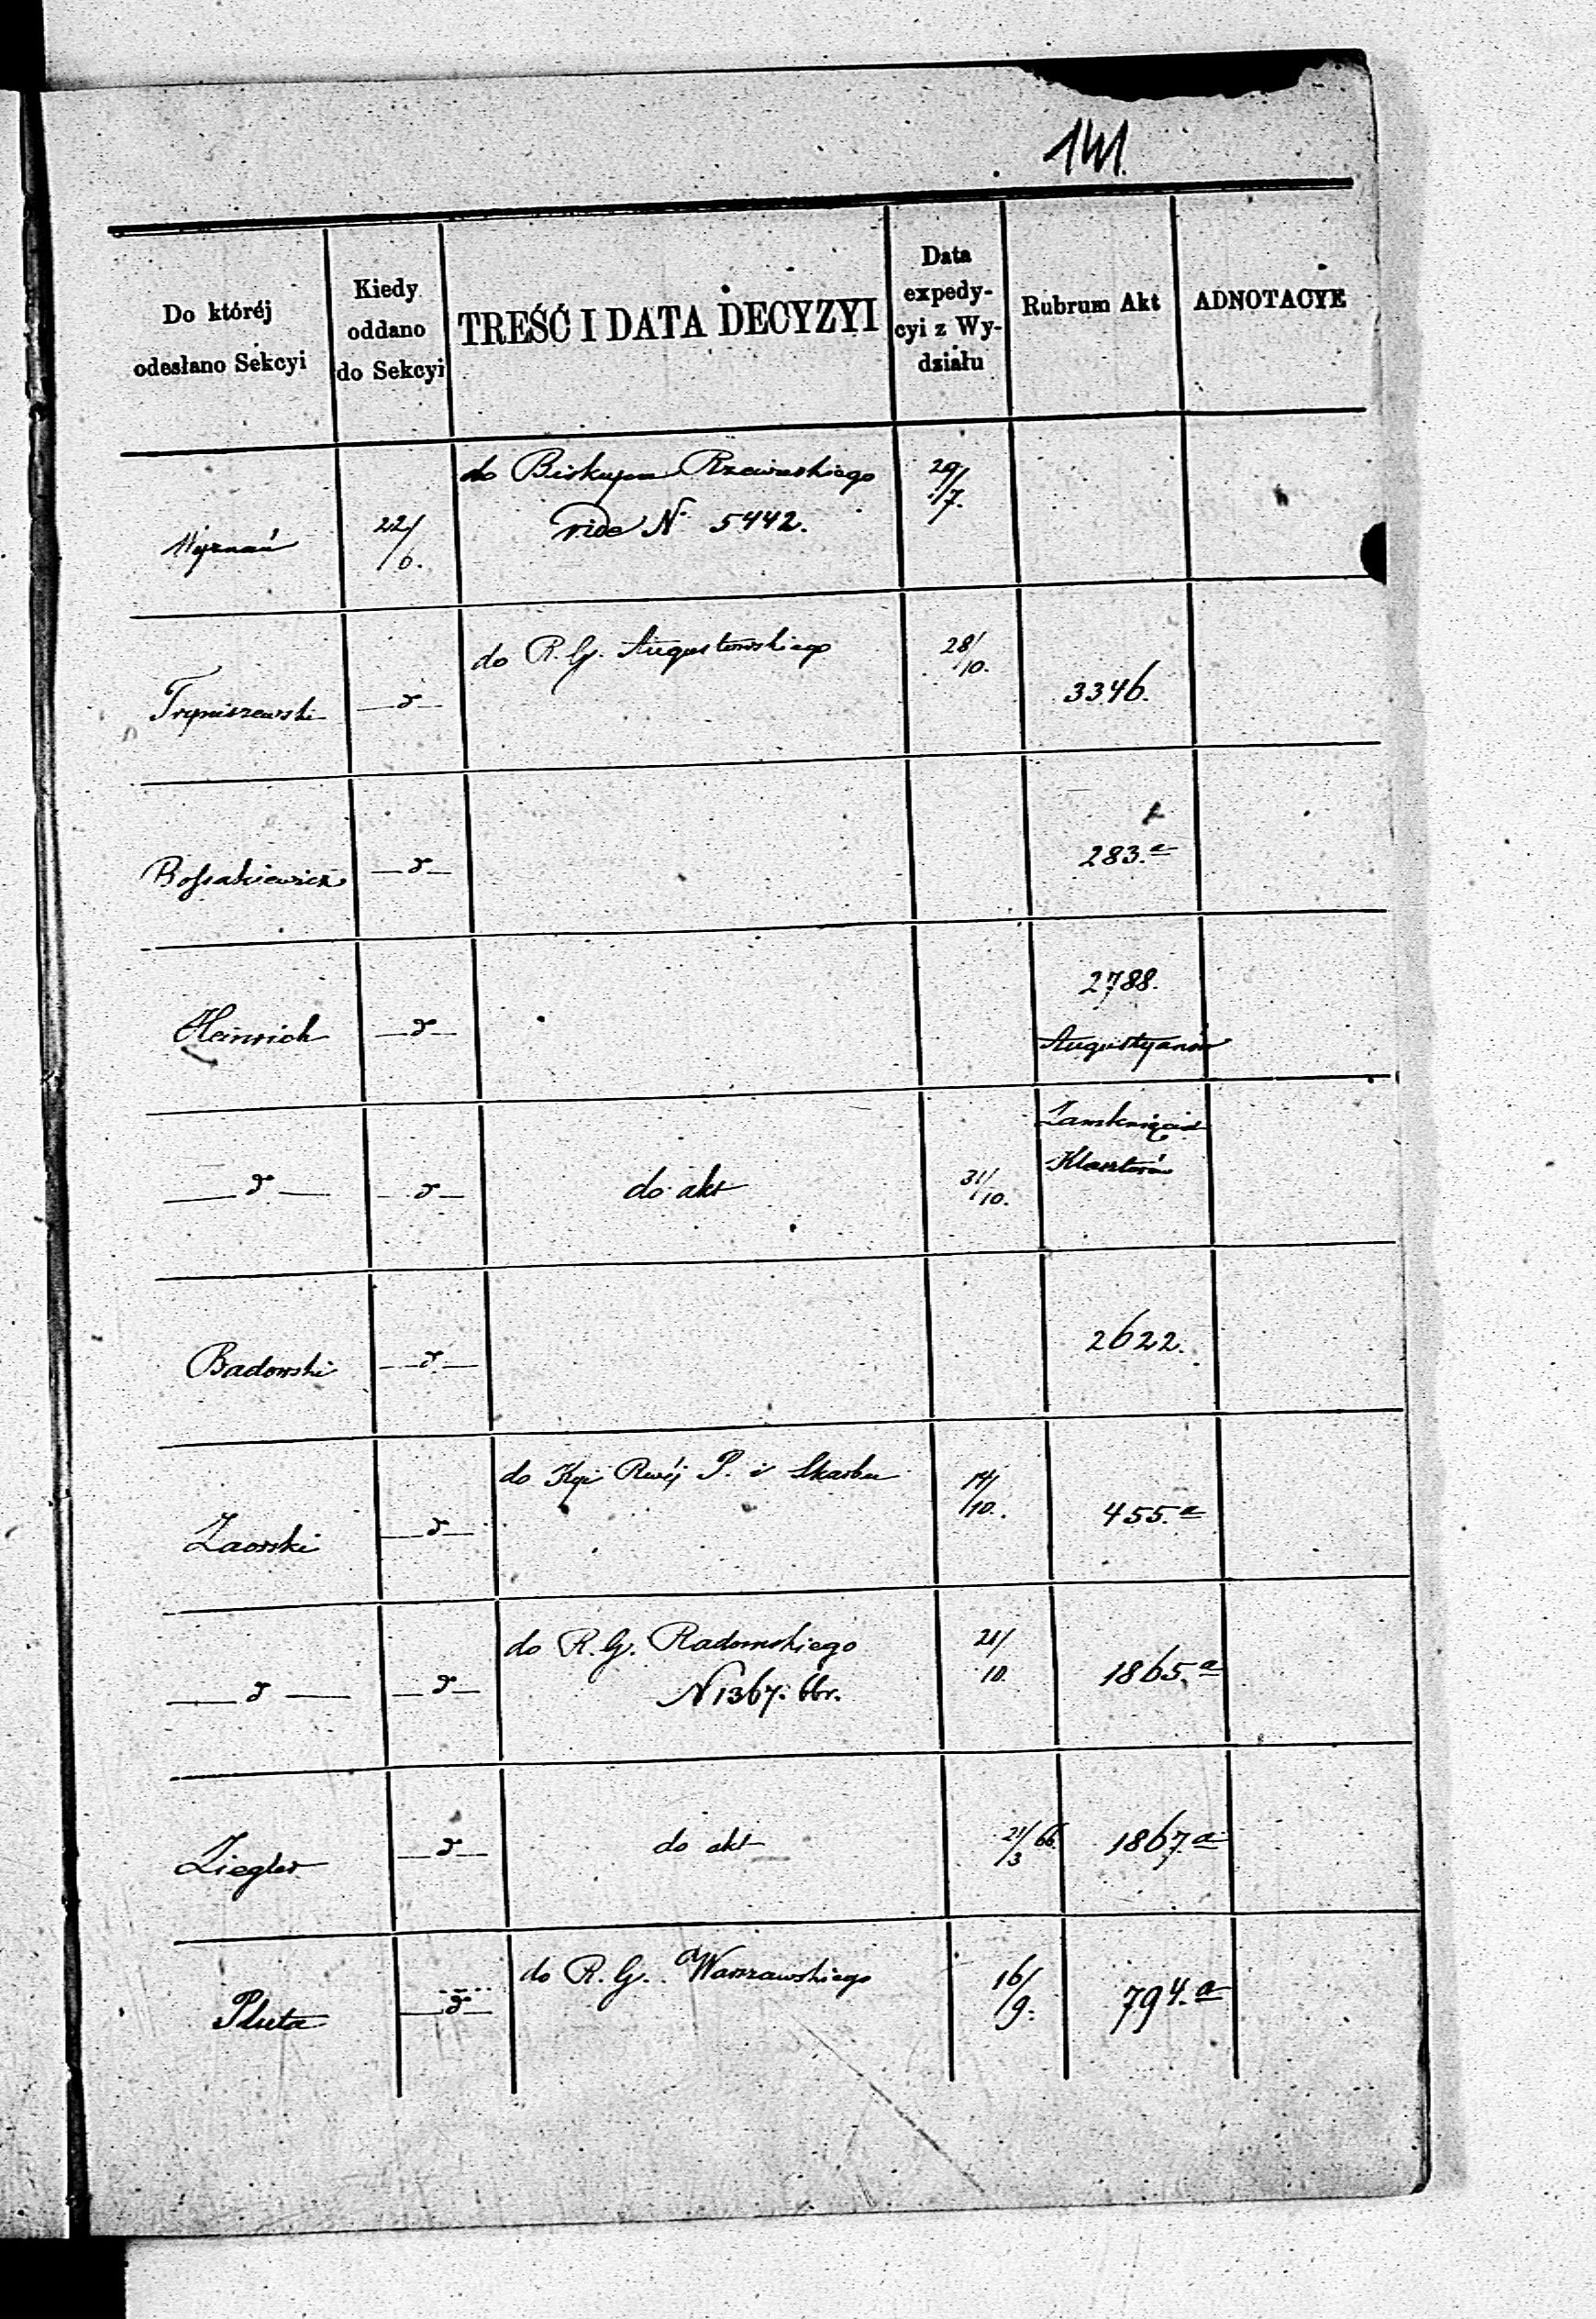 141.
Do któréj
odesłano Sekcyi
Kiedy
oddano
do Sekcyi
TREŚĆ I DATA DECYZYI
Data
expedy-
cyi z Wy-
działu
Rubrum Akt
ADNOTACYE
Wyznań
22/6.
do Biskupa Rzewuskiego
vide N 5442.
29/7.
Trypiszewski
d
do R. G. Augustowskiego
28/10.
3346.
Bossakiewicz
d
283.a
Heinrich
d
2788.
Augustyanów
d
d
do akt
31/10.
Zamknięcia
Klasztorów
Badowski
d
2622.
Zaorski
d
do Kyi Rwéj P. i Skarbu
14/10.
455.a
d
d
do R. G. Radomskiego
N 1367. 66r.
21/10.
1865.a
Ziegler
d
do akt
21/3 66.
1867.a
Pluta
d
do R. G. Warszawskiego
16/9.
794.a